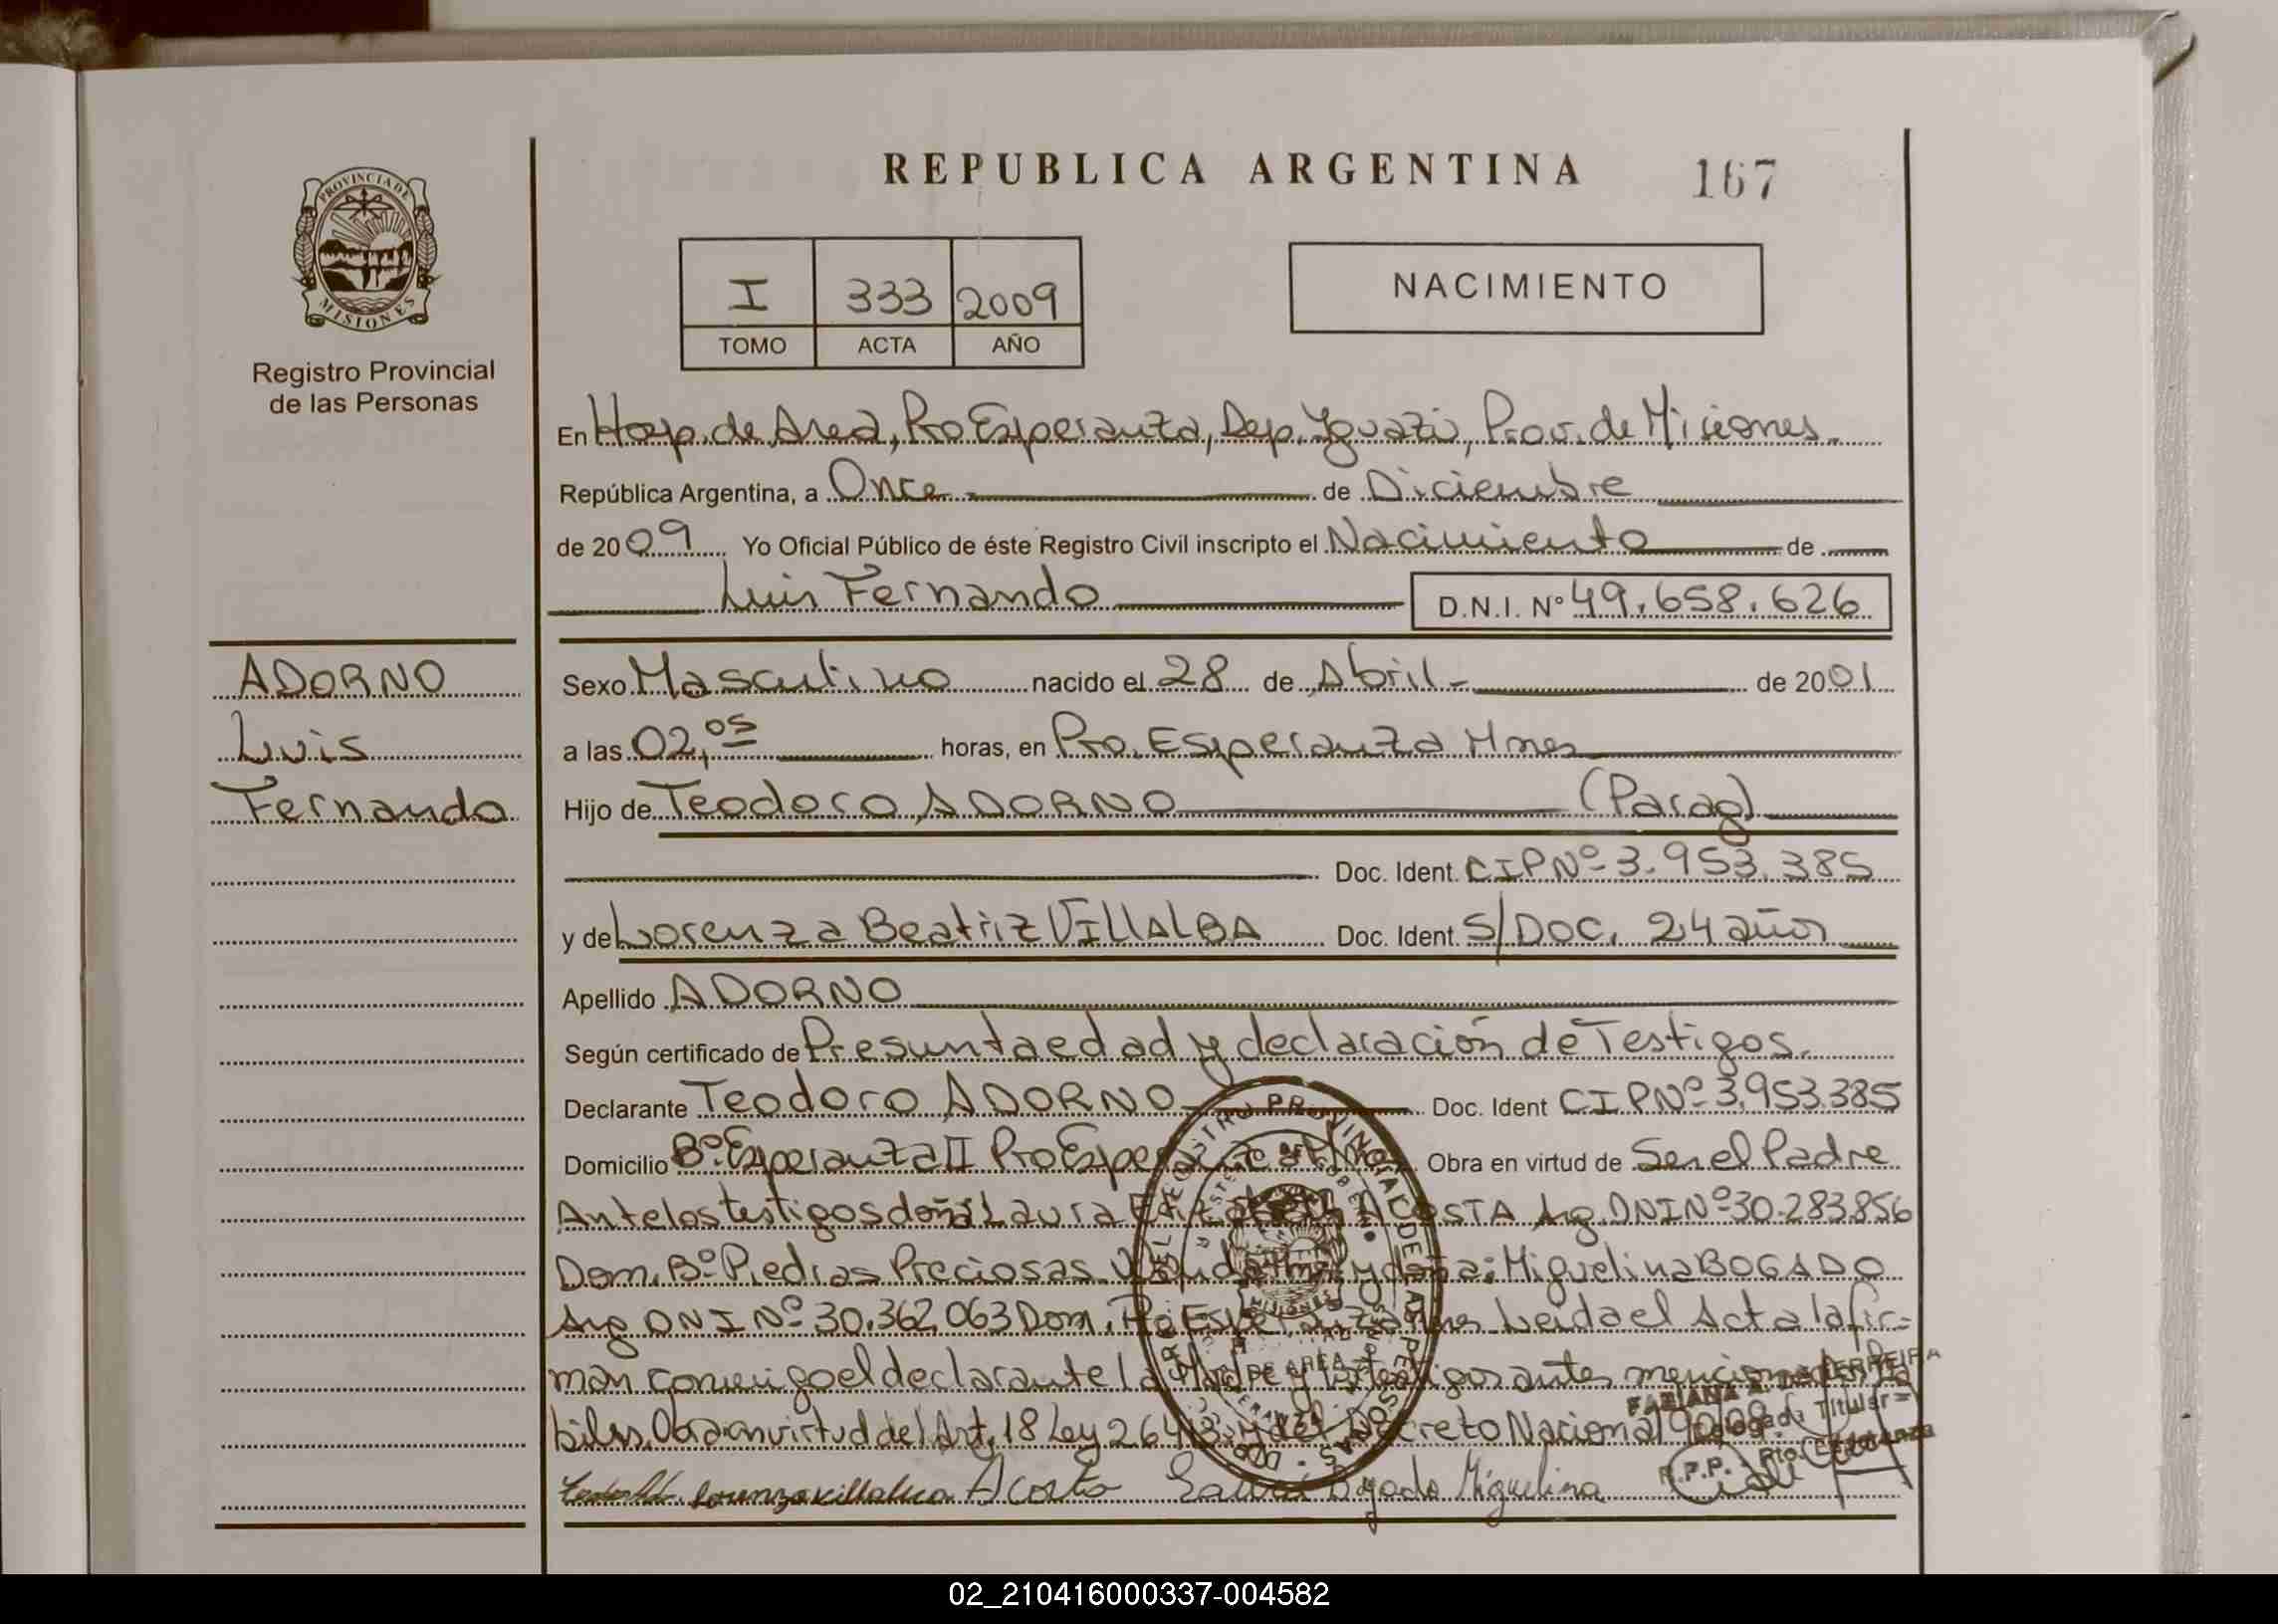 REPUBLICA ARGENTINA
167
PROVINCIA DE MISIONES
Registro Provincial
de las Personas
I 333 2009
TOMO ACTA AÑO
NACIMIENTO
En Hosp. de Area, Pto Esperanza, Dep. Yguazú, Prov. de Misiones.
República Argentina, a Once de Diciembre
de 2009 Yo Oficial Público de éste Registro Civil inscripto el Nacimiento de
Luis Fernando D.N.I. Nº 49.658.626
ADORNO
Luis
Fernando
Sexo Masculino nacido el 28 de Abril de 2001
a las 02,05 horas, en Pto. Esperanza Mnes
Hijo de Teodoro ADORNO (Parag)
Doc. Ident. CIPNº 3.953.385
y de Lorenza Beatriz VILLALBA Doc. Ident. S/DOC. 24 años
Apellido ADORNO
Según certificado de Presunta edad y declaración de Testigos.
Declarante Teodoro ADORNO Doc. Ident CIPNº 3.953.385
Domicilio Bº Esperanza II Pto Esperanza Mnes Obra en virtud de Ser el Padre
Ante los testigos doña: Laura ACOSTA Arg. DNI Nº 30.283.856
Dom. Bº Piedras Preciosas Wanda Mnes y doña: Miguelina BOGADO
Arg DNI Nº 30.362.063 Dom. Pto Esperanza Mnes Leida el Acta la fir=
man conmigo el declarante la Madre y los testigos antes mencionados
Obra en virtud del Art. 18 Ley 26413 y del Decreto Nacional 90/09
Lorenza villalba Acosta Laura Bogado Miguelina
FABIANA FERREIRA
Delegada Titular
R.P.P. Pto. Esperanza
REGISTRO PROVINCIAL DE LAS PERSONAS
02_210416000337-004582